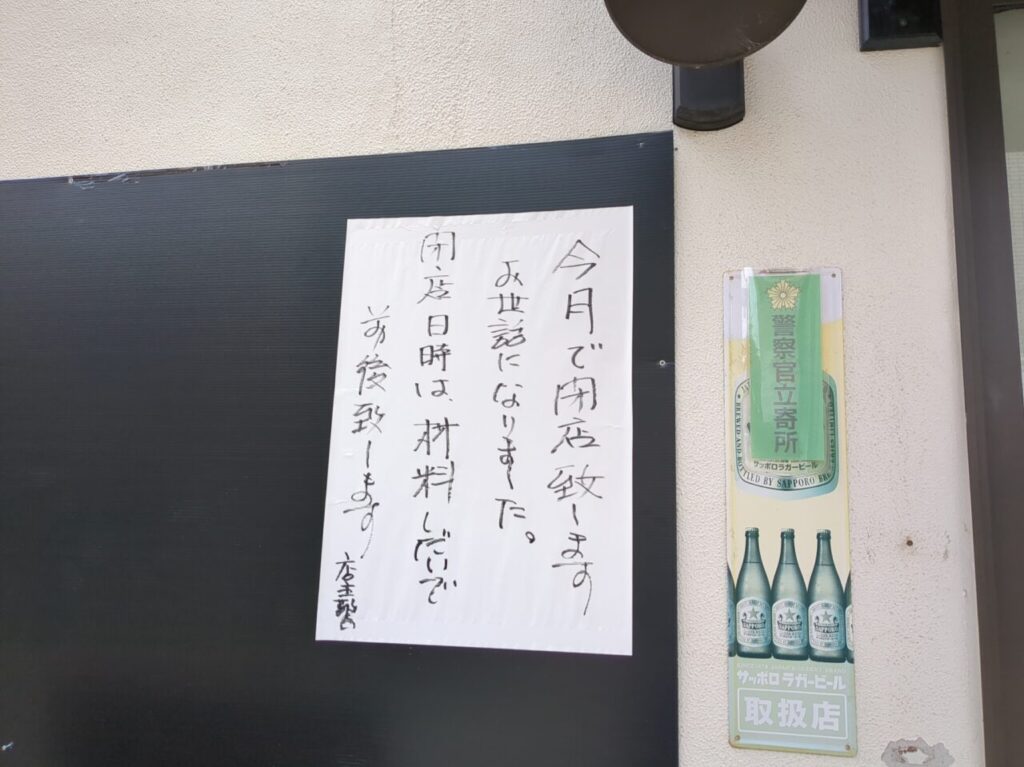 今月で閉店致します
お世話になりました。
閉店日時は、材料しだいで
前後致します
店主
警察官立寄所
サッポロラガービール
TLED BY SAPPORO BRE
SAPPORO
サッポロ ラガービール
取扱店